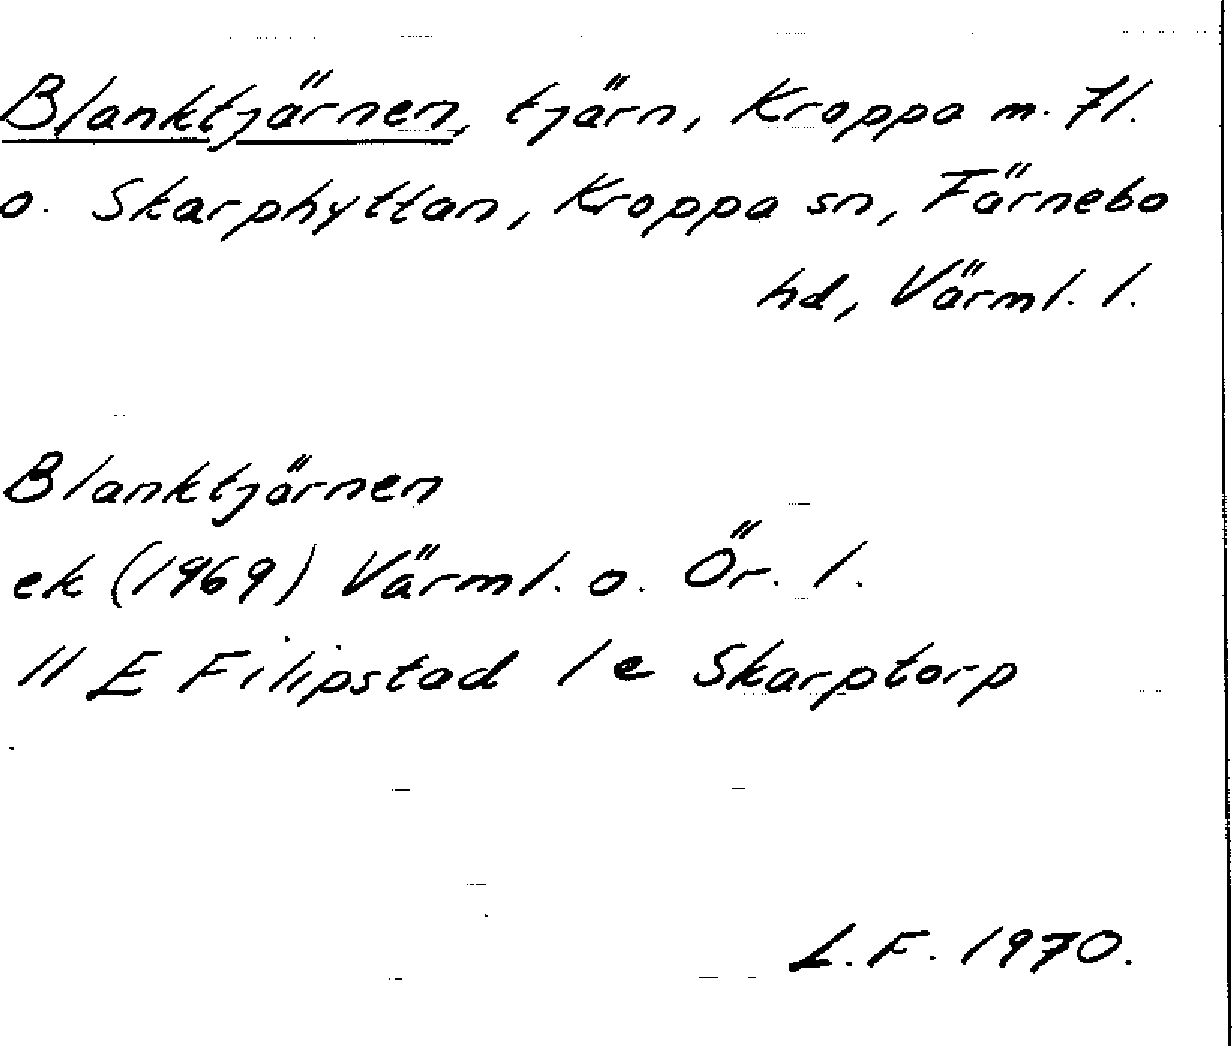 Blanktjärnen, tjärn, Kroppa m. fl.
o. Skarphyttan, Kroppa sn, Färnebo
hd, Värml. l.
Blanktjärnen
ek (1969) Värml. o. Ör. l.
11 E Filipstad 1 e Skarptorp
L.F. 1970.